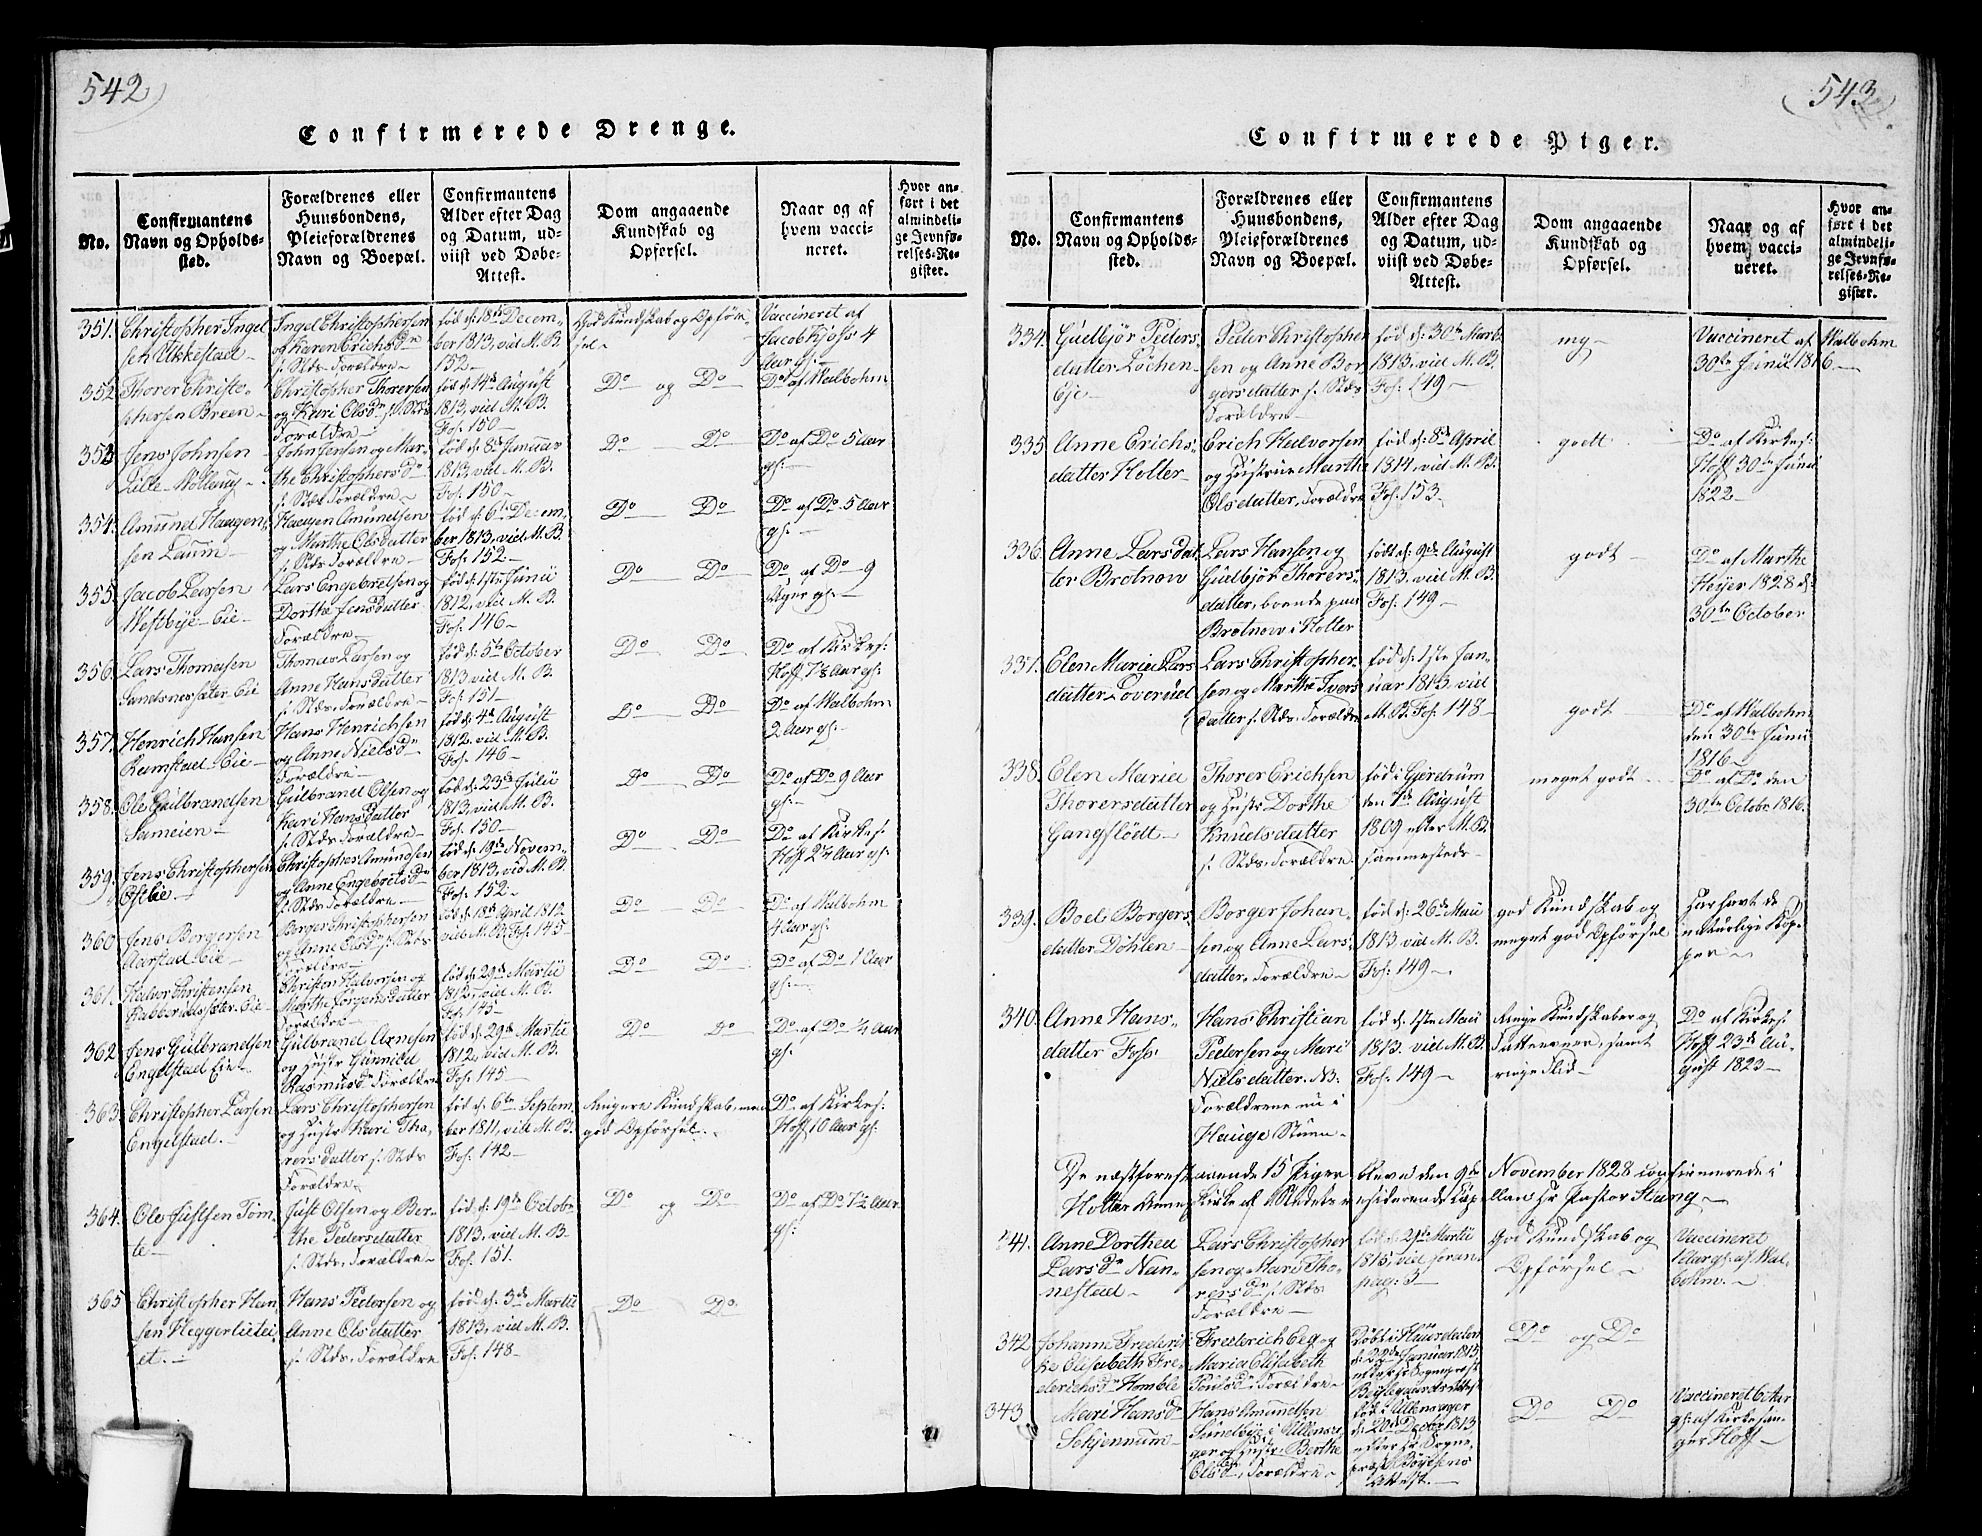 542)
Confirmerede Drenge.
No.
Confirmantens
Navn og Opholds-
sted.
Forældrenes eller
Huusbondens,
Pleieforældrenes
Navn og Boepæl.
Confirmantens
Alder efter Dag
og Datum, ud-
viist ved Døbe-
Attest.
Dom angaaende
Kundskab og
Opførsel.
Naar og af
hvem vacci-
neret.
Hvor an-
ført i det
almindeli-
ge Jevnfø-
relses-Re-
gister.
351.
Christopher Ingel
sen Ukkestad
Ingel Christophersen
og Karen Erichsdr
f. Stds Forældre
fød d: 18de Decem-
ber 1813, vid M. B.
152
God Kundskab og Opfør-
sel
Vaccineret af
Jacob Kjøss 4
Aar gl:
352.
Thorer Christo-
phersen Breen
Christopher Thorersen
og Kari Olsdr f. Stds
Forældre
fød d: 14de August
1813, vid M. B.
Fol: 150
Do og Do
Do af Walbohm
353.
Jens Johnsen
Lille-Mollaug
John Jensen og Mar-
the Christophersdr
f. Stds Forældre
fød d: 8de Januar
1813, vid M. B.
Fol: 150
Do Do
Do af Do 5 Aar
gl:
354.
Amund Haagen
sen Laum
Haagen Amundsen
og Marthe Olsdatter
f. Stds Forældre
fød d: 6te Decem-
ber 1813, vid M. B.
Fol: 152
Do Do
Do af Do 5 Aar
gl:
355.
Jacob Larsen
Westbye-Eie
Lars Engebretsen og
Dorthe Jensdatter
Forældre
fød d: 1ste Junii
1812, vid M. B.
Fol: 146
Do Do
Do af Do 9
Uger gl:
356.
Lars Thomesen
Sandsnessæter-Eie
Thomas Larsen og
Anne Hansdatter
f. Stds Forældre
fød d: 5te October
1813 vid M. B.
Fol: 151
Do Do
Do af Kirkes:
Hoff 1½ Aar gl:
357.
Henrich Hansen
Ramstad-Eie
Hans Henrichsen
og Anne Nielsdr
Forældre
fød d: 4de August
1812. vid M. B.
Fol: 146
Do Do
Do af Walbohm
2 Aar gl:
358.
Ole Gulbrandsen
Sameien
Gulbrand Olsen og
Kari Hansdatter
f. Stds Forældre
fød d: 23de Julii
1813, vid M. B.
Fol: 150
Do Do
Do af Do 9 Aar
gl:
359.
Jens Christophersen
Østbie
Christopher Amundsen
og Anne Engebretsdr
f. Stds Forældre
fød d: 19de Novem-
ber 1813, vid M. B.
Fol: 152
Do Do
Do af Kirkes:
Hoff 2¼ Aar gl:
360.
Jens Borgersen
Aarstad-Eie
Borger Christophersen
og Anne Olsdr f. Stds
Forældre
fød d: 18de April 1812
vid M. B. Fol: 145
Do Do
Do af Walbohm
4 Aar gl:
361.
Halvor Christensen
Rabberudsæter-Eie
Christen Halvorsen og
Marthe Jørgensdatter
Forældre
fød d: 29de Martii
1812, vid M. B.
Fol: 145
Do Do
Do af Do 1 Aar
gl:
362.
Jens Gulbrandsen
Engelstad Eie
Gulbrand Arnesen
og Hustr Gunnild
Rasmusdr Forældre
fød d: 29de Martii
1812, vid M. B.
Fol: 145
Do Do
Do af Do ¼ Aar
gl:
363.
Christopher Larsen
Engelstad.
Lars Christophersen
og Hustr Kari Tho-
rersdatter f. Stds
Forældre
fød d: 6te Septem-
ber 1811, vid M. B.
Fol: 142
Ringere Kundskab, men
god Opførsel.
Do af Kirkes:
Hoff 10 Aar gl:
364.
Ole Justsen Tøm-
te
Just Olsen og Ber-
the Pedersdatter
f. Stds. Forældre
fød d: 19de Octobr
1813, vid M. B.
Fol: 151.
Do og Do
Do af Do 1½ Aar
gl:
365
Christopher Han
sen Heggerliitei
et.
Hans Pedersen og
Anne Olsdatter
f. Stds. Forældre
fød d: 3de Martii
1813, vid M. B.
Fol: 148
Do Do
(543
Confirmerede Piger.
No.
Confirmantens
Navn og Opholds-
sted.
Forældrenes eller
Huusbondens,
Pleieforældrenes
Navn og Boepæl.
Confirmantens
Alder efter Dag
og Datum, ud-
viist ved Døbe-
Attest.
Dom angaaende
Kundskab og
Opførsel.
Naar og af
hvem vacci-
neret.
Hvor an-
ført i det
almindeli-
ge Jevnfø-
relses-Re-
gister.
334.
Gudbjør Peders-
datter Løchen-
Eje
Peder Christopher
sen og Anne Bor-
gersdatter f. Stds
Forældre
fød d: 30te Marts
1813. vid M. B.
Fol: 149
mg
Vaccineret af Walbohm
30te Junii 1816
335
Anne Erichs-
datter Holter
Erich Halvorsen
og Hustrue Marthe
Olsdatter, Forældre
fød d: 8de April
1814, vid M. B.
Fol: 153
godt
Do af Kirkes:
Hoff 30te Junii
1822
336.
Anne Larsdat
ter Brotnow
Lars Hansen og
Gudbjør Thorers-
datter, boende paa
Brotnow i Holter
født d: 9de August
1813. vid M. B.
Fol: 149
godt
Do af Marthe
Høyer 1828 d:
30te October
337.
Elen Maria Lars
datter Loverud
Lars Christopher-
sen og Marthe Ivers
datter f. Stds. Forældre
fød d: 1ste Jan-
uar 1813, vid
M. B. Fol: 148
godt
Do af Walbohm
den 30te Junii
1816
338.
Elen Maria
Thorersdatter
Gangflødt
Thorer Erichsen
og Hustr Dorthe
Knudsdatter
f. Stds. Forældre
fød i Gjerdrum
den 1de August
1809 efter M. B.
sammesteds
meget godt
Do af Do den
30te Octobr 1816.
339.
Boel Borgers-
datter Døhlen
Borger Johan-
sen og Anne Lars-
datter, Forældre
fød d: 26de Maii
1813. vid M. B.
Fol: 149
god Kundskab og
meget god Opførsel
Har havt de
naturlige Kop-
per
340.
Anne Hans-
datter Foss.
Hans Christian
Pedersen og Mari
Nielsdatter. NB.
Forældrene nu i
Hauge Stuen
fød d: 1ste Maii
1813. vid M. B.
Fol: 149
Ringe Kundskaber og
Fatteevne, samt
ringe Flid
Do af Kirkes:
Hoff 23de Au-
gust 1823
De næstforestaaende 15 Piger bleve den 9de November 1828 confirmerede i
Holter Annex Kirke af Stedets residerende Capellan Hr Pastor Stang
341.
Anne Dorthea
Larsdr Nan-
nestad
Lars Christopher
sen og Mari Tho-
rersdr f. Stds
Forældre
fød d: 21de Martii
1815, vid foran
pag: 3
God Kundskab og
Opførsel
Vaccineret
1 Aar gl: af Wal-
bohm.
342
Johanne Frederik
ke Elisabeth Fre-
derichsdr Homble
Frederich Eeg og
Maria Elisabeth
Poulsdr Forældre
Døbt i Huusdøben
d: 22de Januar 1815
Do og Do
343
Mari Hansdr
Schjennum
Hans Amundsen
i Ullensa-
ger og Hustr. Berthe
Olsdr, Forældre
fød i Ullensager
d: 20de Decbr 1813
efter Hr Sogne
præst
Attest.
Do Do
Vaccineret 6 Aar
gl: af Kirkesan-
ger Hoff